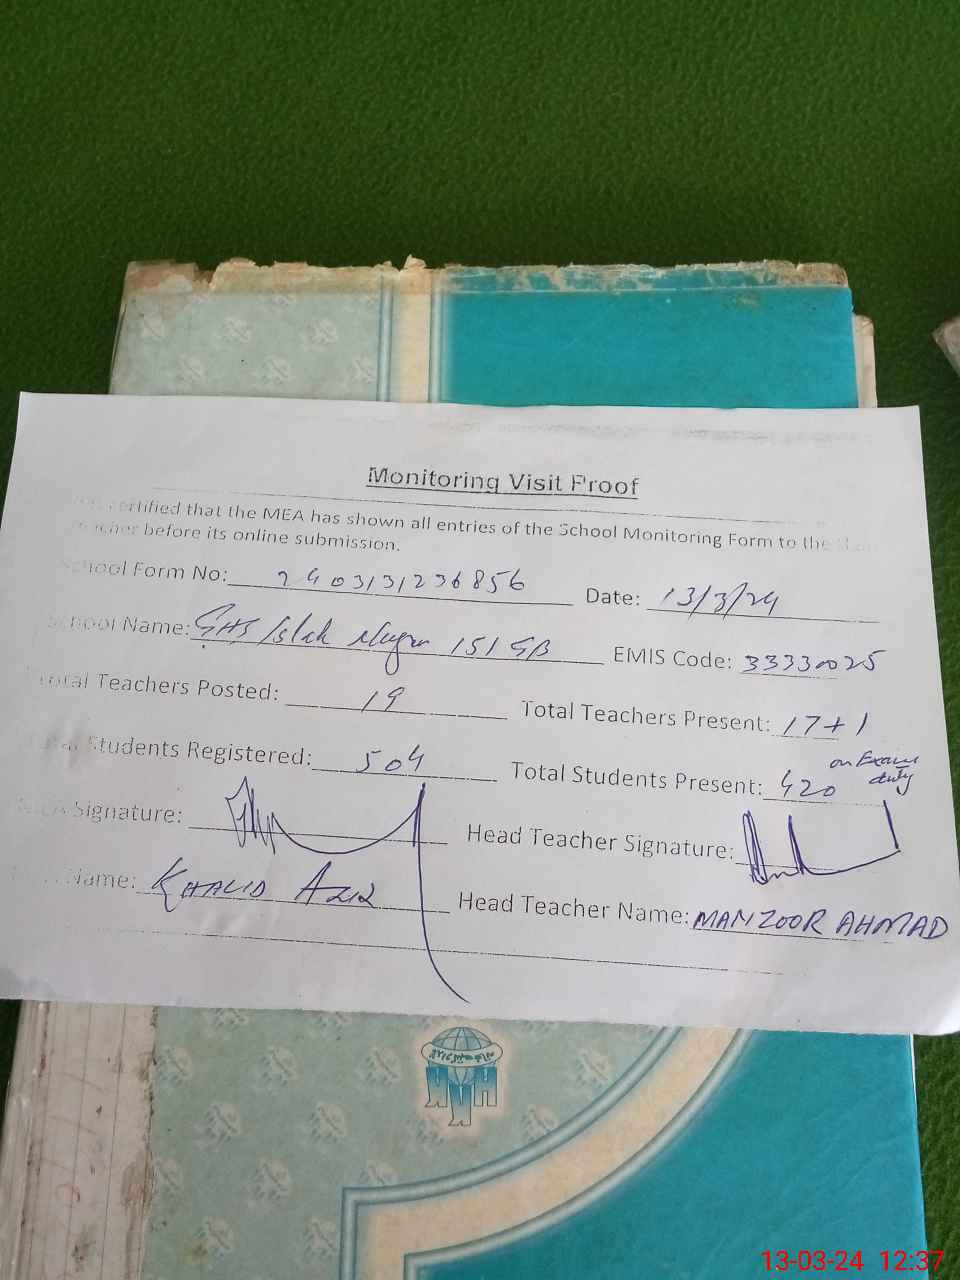 Monitoring Visit Proof
certified that the MEA has shown all entries of the School Monitoring Form to the
before its online submission.
School Form No: 2403131236856 Date: 13/3/24
School Name: GHS Islah Nagar 151 GB EMIS Code: 33330025
Total Teachers Posted: 19 Total Teachers Present: 17+1
on Exam duty
Total Students Registered: 504 Total Students Present: 420
Signature: Head Teacher Signature:
Name: KHALID AZIZ Head Teacher Name: MANZOOR AHMAD
13-03-24 12:37